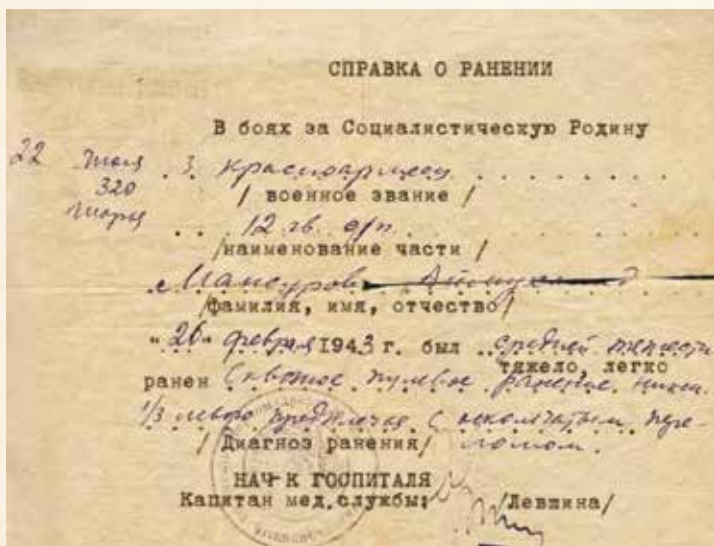 СПРАВКА О РАНЕНИИ
В боях за Социалистическую Родину
22 Июля 3 красноармеец
320
/ военное звание /
12 гв. с/п
/наименование части /
Мансуров
/фамилия, имя, отчество/
"26" февраля 1943 г. был средней тяжести
тяжело, легко
ранен Сквозное пулевое ранение нижн.
1/3 левого предплечья с оскольчатым пере-
/ Диагноз ранения/ ломом.
НАЧ-К ГОСПИТАЛЯ
Капитан мед.службы: /Левшина/